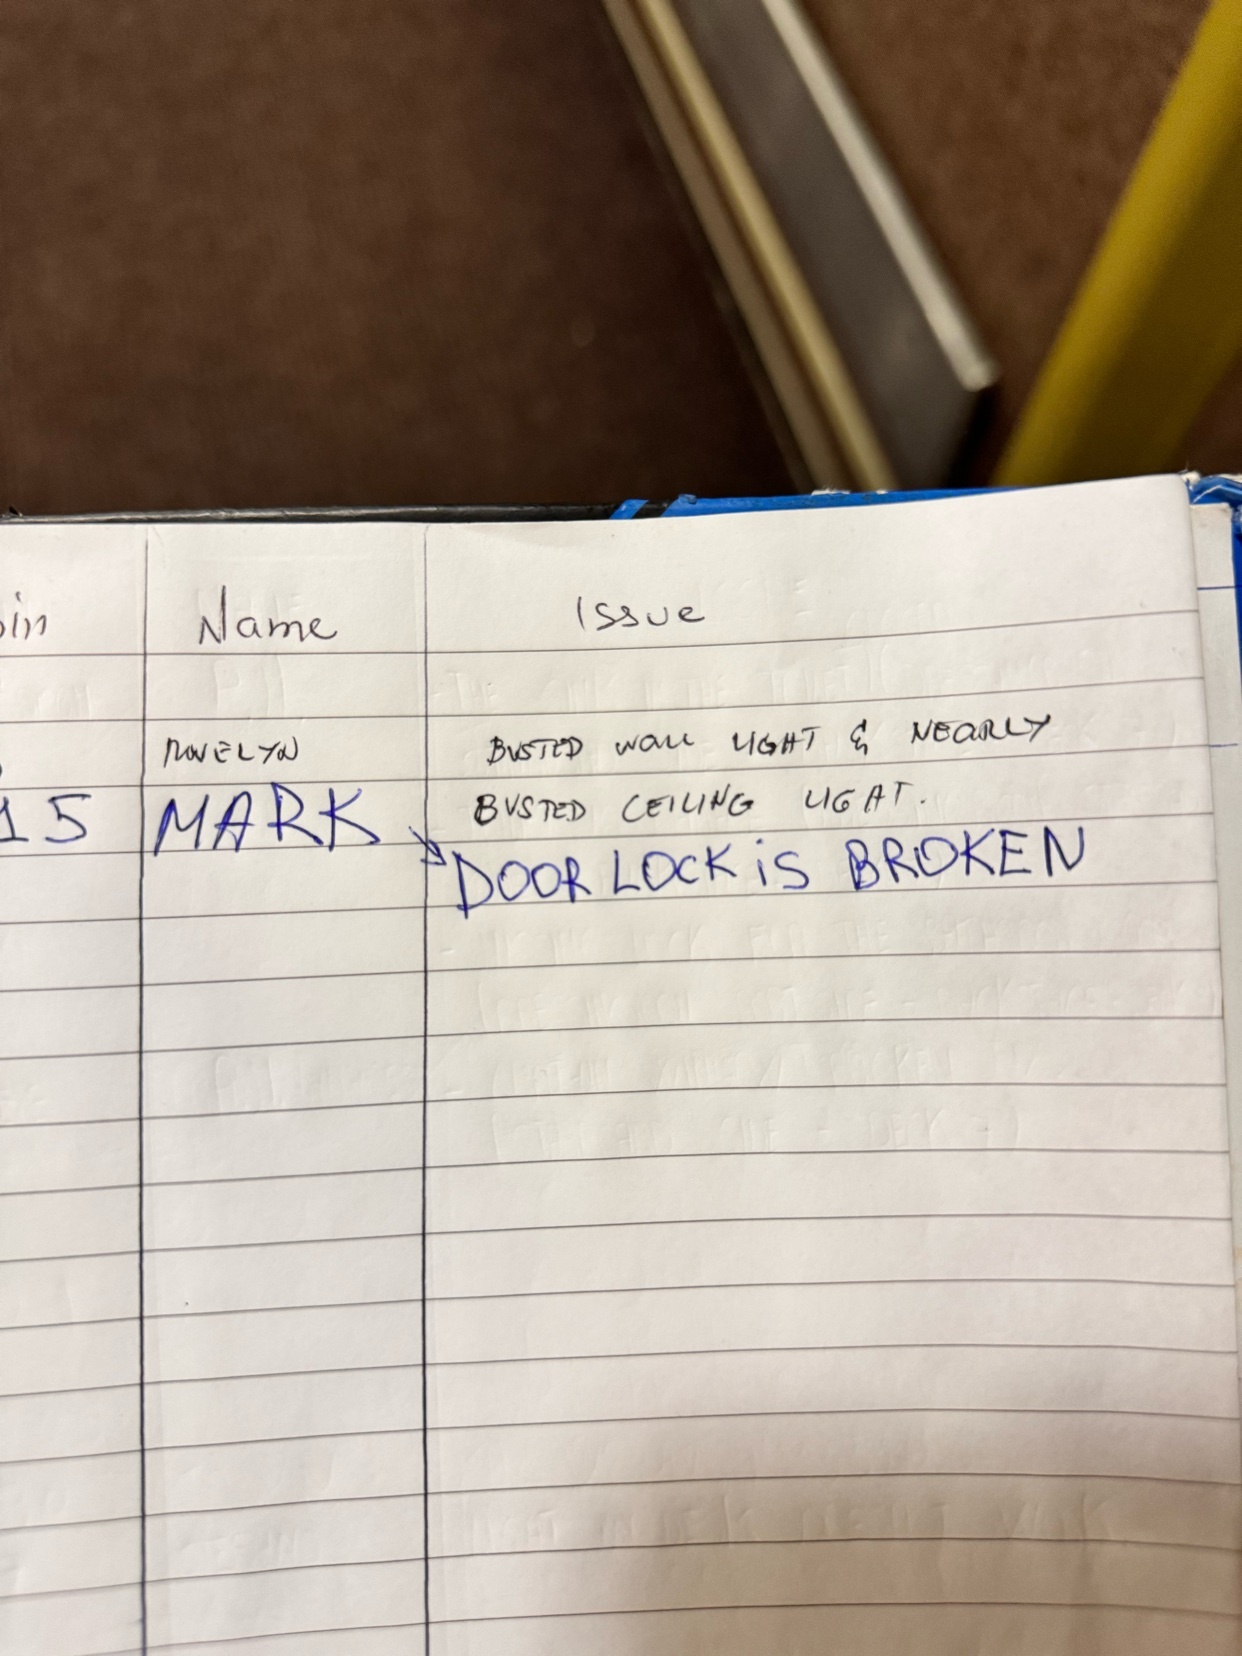 Name Issue
BUSTED WALL LIGHT & NEARLY
15 MARK BUSTED CEILING LIGHT.
DOOR LOCK iS BROKEN